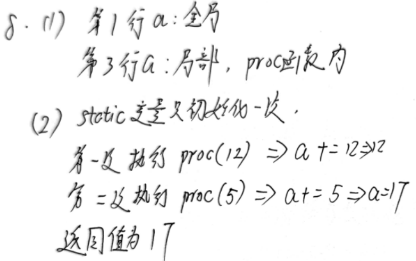 8. (1) 第1行a:全局
第3行a:局部, proc函数内
(2) static变量只初始化一次.
第一次执行 proc(12) ⇒ a += 12⇒12
第二次执行 proc(5) ⇒ a+= 5 ⇒a=17
返回值为17